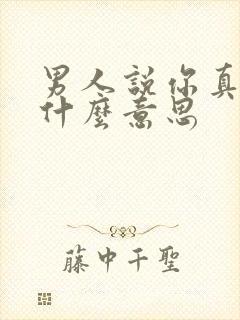 男人說你真
什麼意思
藤中千聖